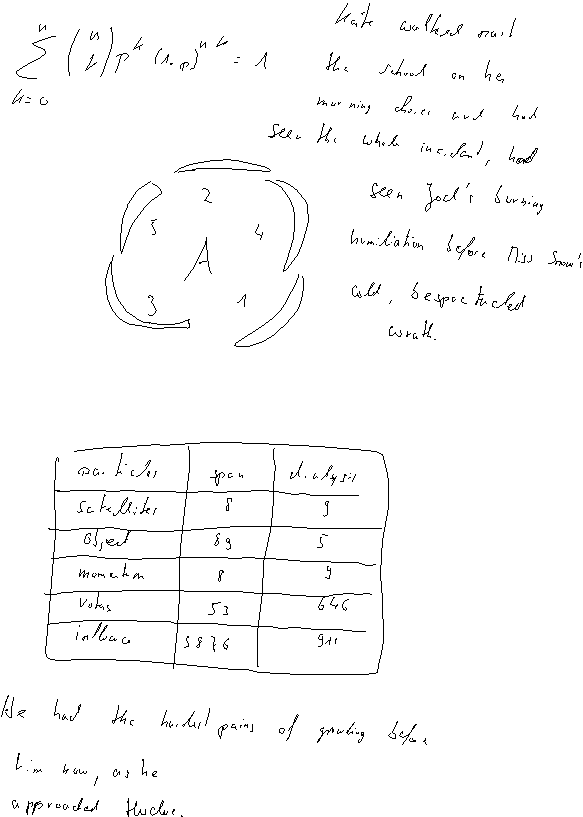 n
∑ (n k) p^k (1-p)^n-k = 1
k=0
Kate walked past
the school on her
morning chores and had
seen the whole incident, had
seen Joel's burning
humiliation before Miss Snow's
cold, bespectacled
wrath.
2
5 4
A
3 1
particles span dialysis
satellites 8 9
object 89 5
momentum 8 9
votes 53 646
influence 5876 911
He had the hardest pains of growing before
him now, as he
approached twelve.